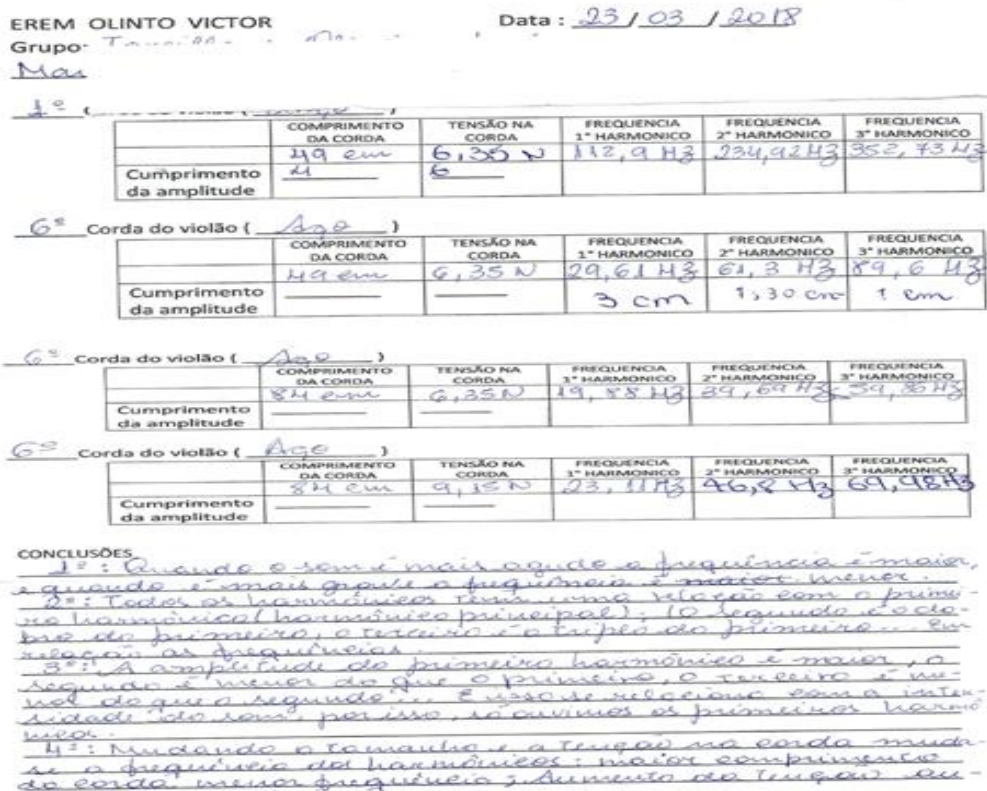 EREM OLINTO VICTOR Data : 23 / 03 / 2018
Grupo-
1º (
COMPRIMENTO DA CORDA TENSÃO NA CORDA FREQUENCIA 1° HARMONICO FREQUENCIA 2° HARMONICO FREQUENCIA 3° HARMONICO
49 cm 6,35 N 112,9 Hz 234,92 Hz 352,73 Hz
Cumprimento da amplitude
6ª Corda do violão ( Aço )
COMPRIMENTO DA CORDA TENSÃO NA CORDA FREQUENCIA 1° HARMONICO FREQUENCIA 2° HARMONICO FREQUENCIA 3° HARMONICO
49 cm 6,35 N 29,61 Hz 61,3 Hz 89,6 Hz
Cumprimento da amplitude 3 cm 1,30 cm 1 cm
6ª Corda do violão ( Aço )
COMPRIMENTO DA CORDA TENSÃO NA CORDA FREQUENCIA 1° HARMONICO FREQUENCIA 2° HARMONICO FREQUENCIA 3° HARMONICO
84 cm 6,35 N 19,88 Hz 39,69 Hz 59,85 Hz
Cumprimento da amplitude
6ª Corda do violão ( Aço )
COMPRIMENTO DA CORDA TENSÃO NA CORDA FREQUENCIA 1° HARMONICO FREQUENCIA 2° HARMONICO FREQUENCIA 3° HARMONICO
84 cm 9,15 N 23,11 Hz 46,8 Hz 69,98 Hz
Cumprimento da amplitude
CONCLUSÕES
1º : Quando o som é mais agudo a frequência é maior,
e quando é mais grave a frequência é maior menor.
2º : Todos os harmônicos tem uma relação com o primei-
ro harmônico (harmônico principal): (O segundo é o do-
bro do primeiro, o terceiro é o triplo do primeiro... Em
relação as frequências.
3º : A amplitude do primeiro harmônico é maior, o
segundo é menor do que o primeiro, o terceiro é me-
nor do que o segundo... E isso se relaciona com a inten-
sidade do som, por isso, só ouvimos os primeiros harmô
nicos.
4º : Mudando o tamanho e a tensão na corda muda-
se a frequência dos harmônicos: maior comprimento
da corda menor frequência; Aumento da tensão au-